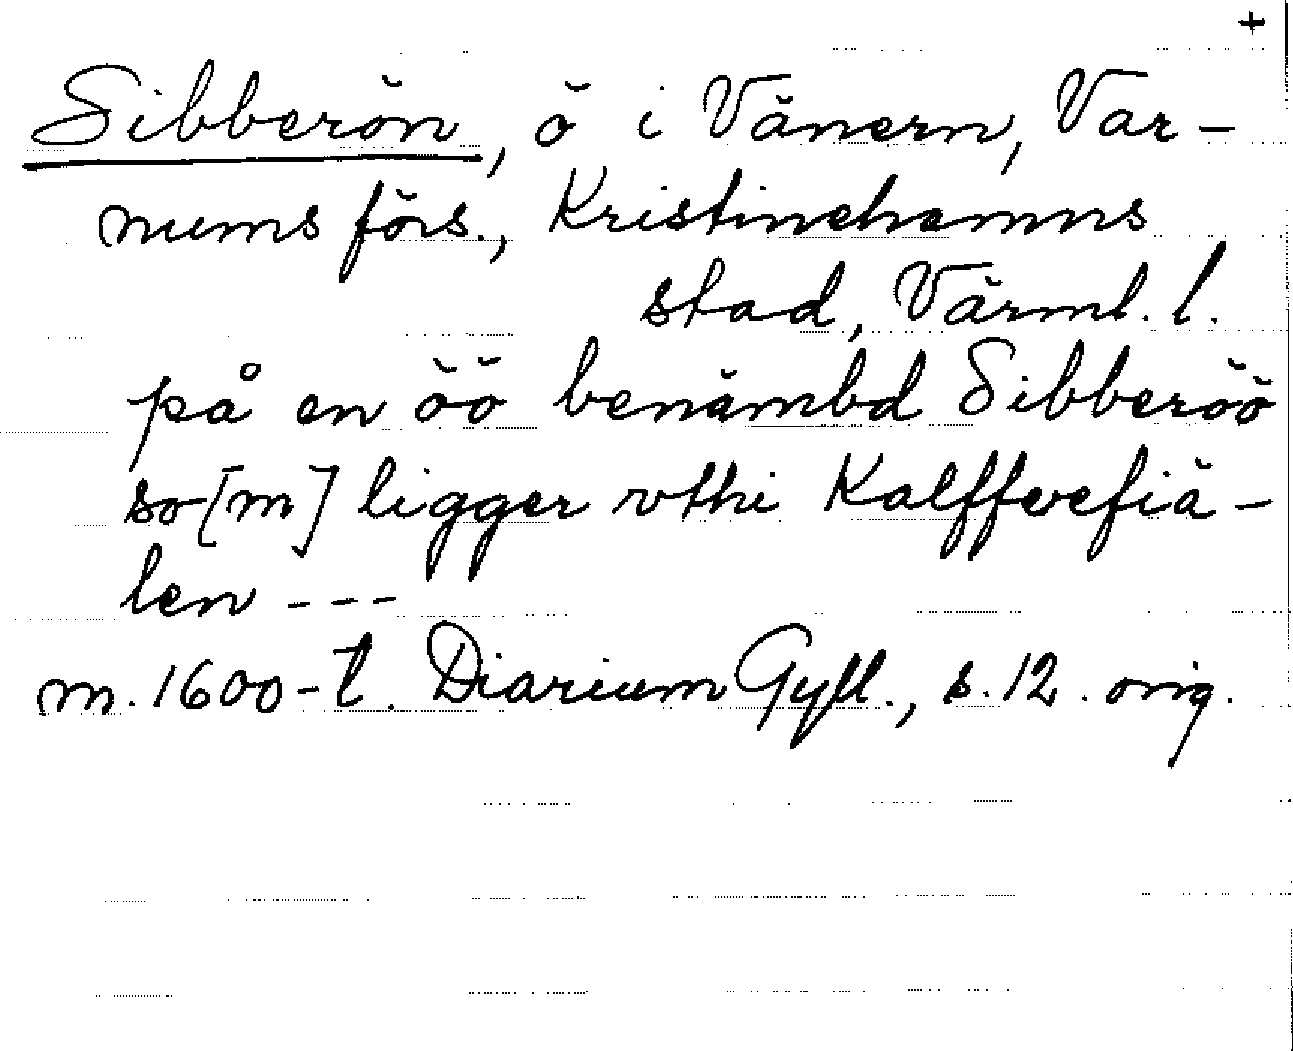 +
Sibberön, ö i Vänern, Var-
nums förs., Kristinehamns
stad, Värml. l.
på en öö benämbd Sibberöö
so[m] ligger vthi Kalffvefiä-
len ---
m. 1600-t. Diarium Gyll., s. 12. orig.